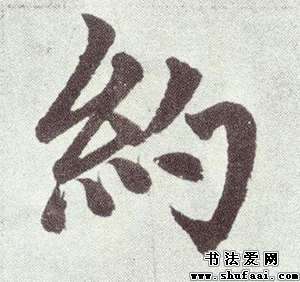 約
书法爱网
www.shufaai.com